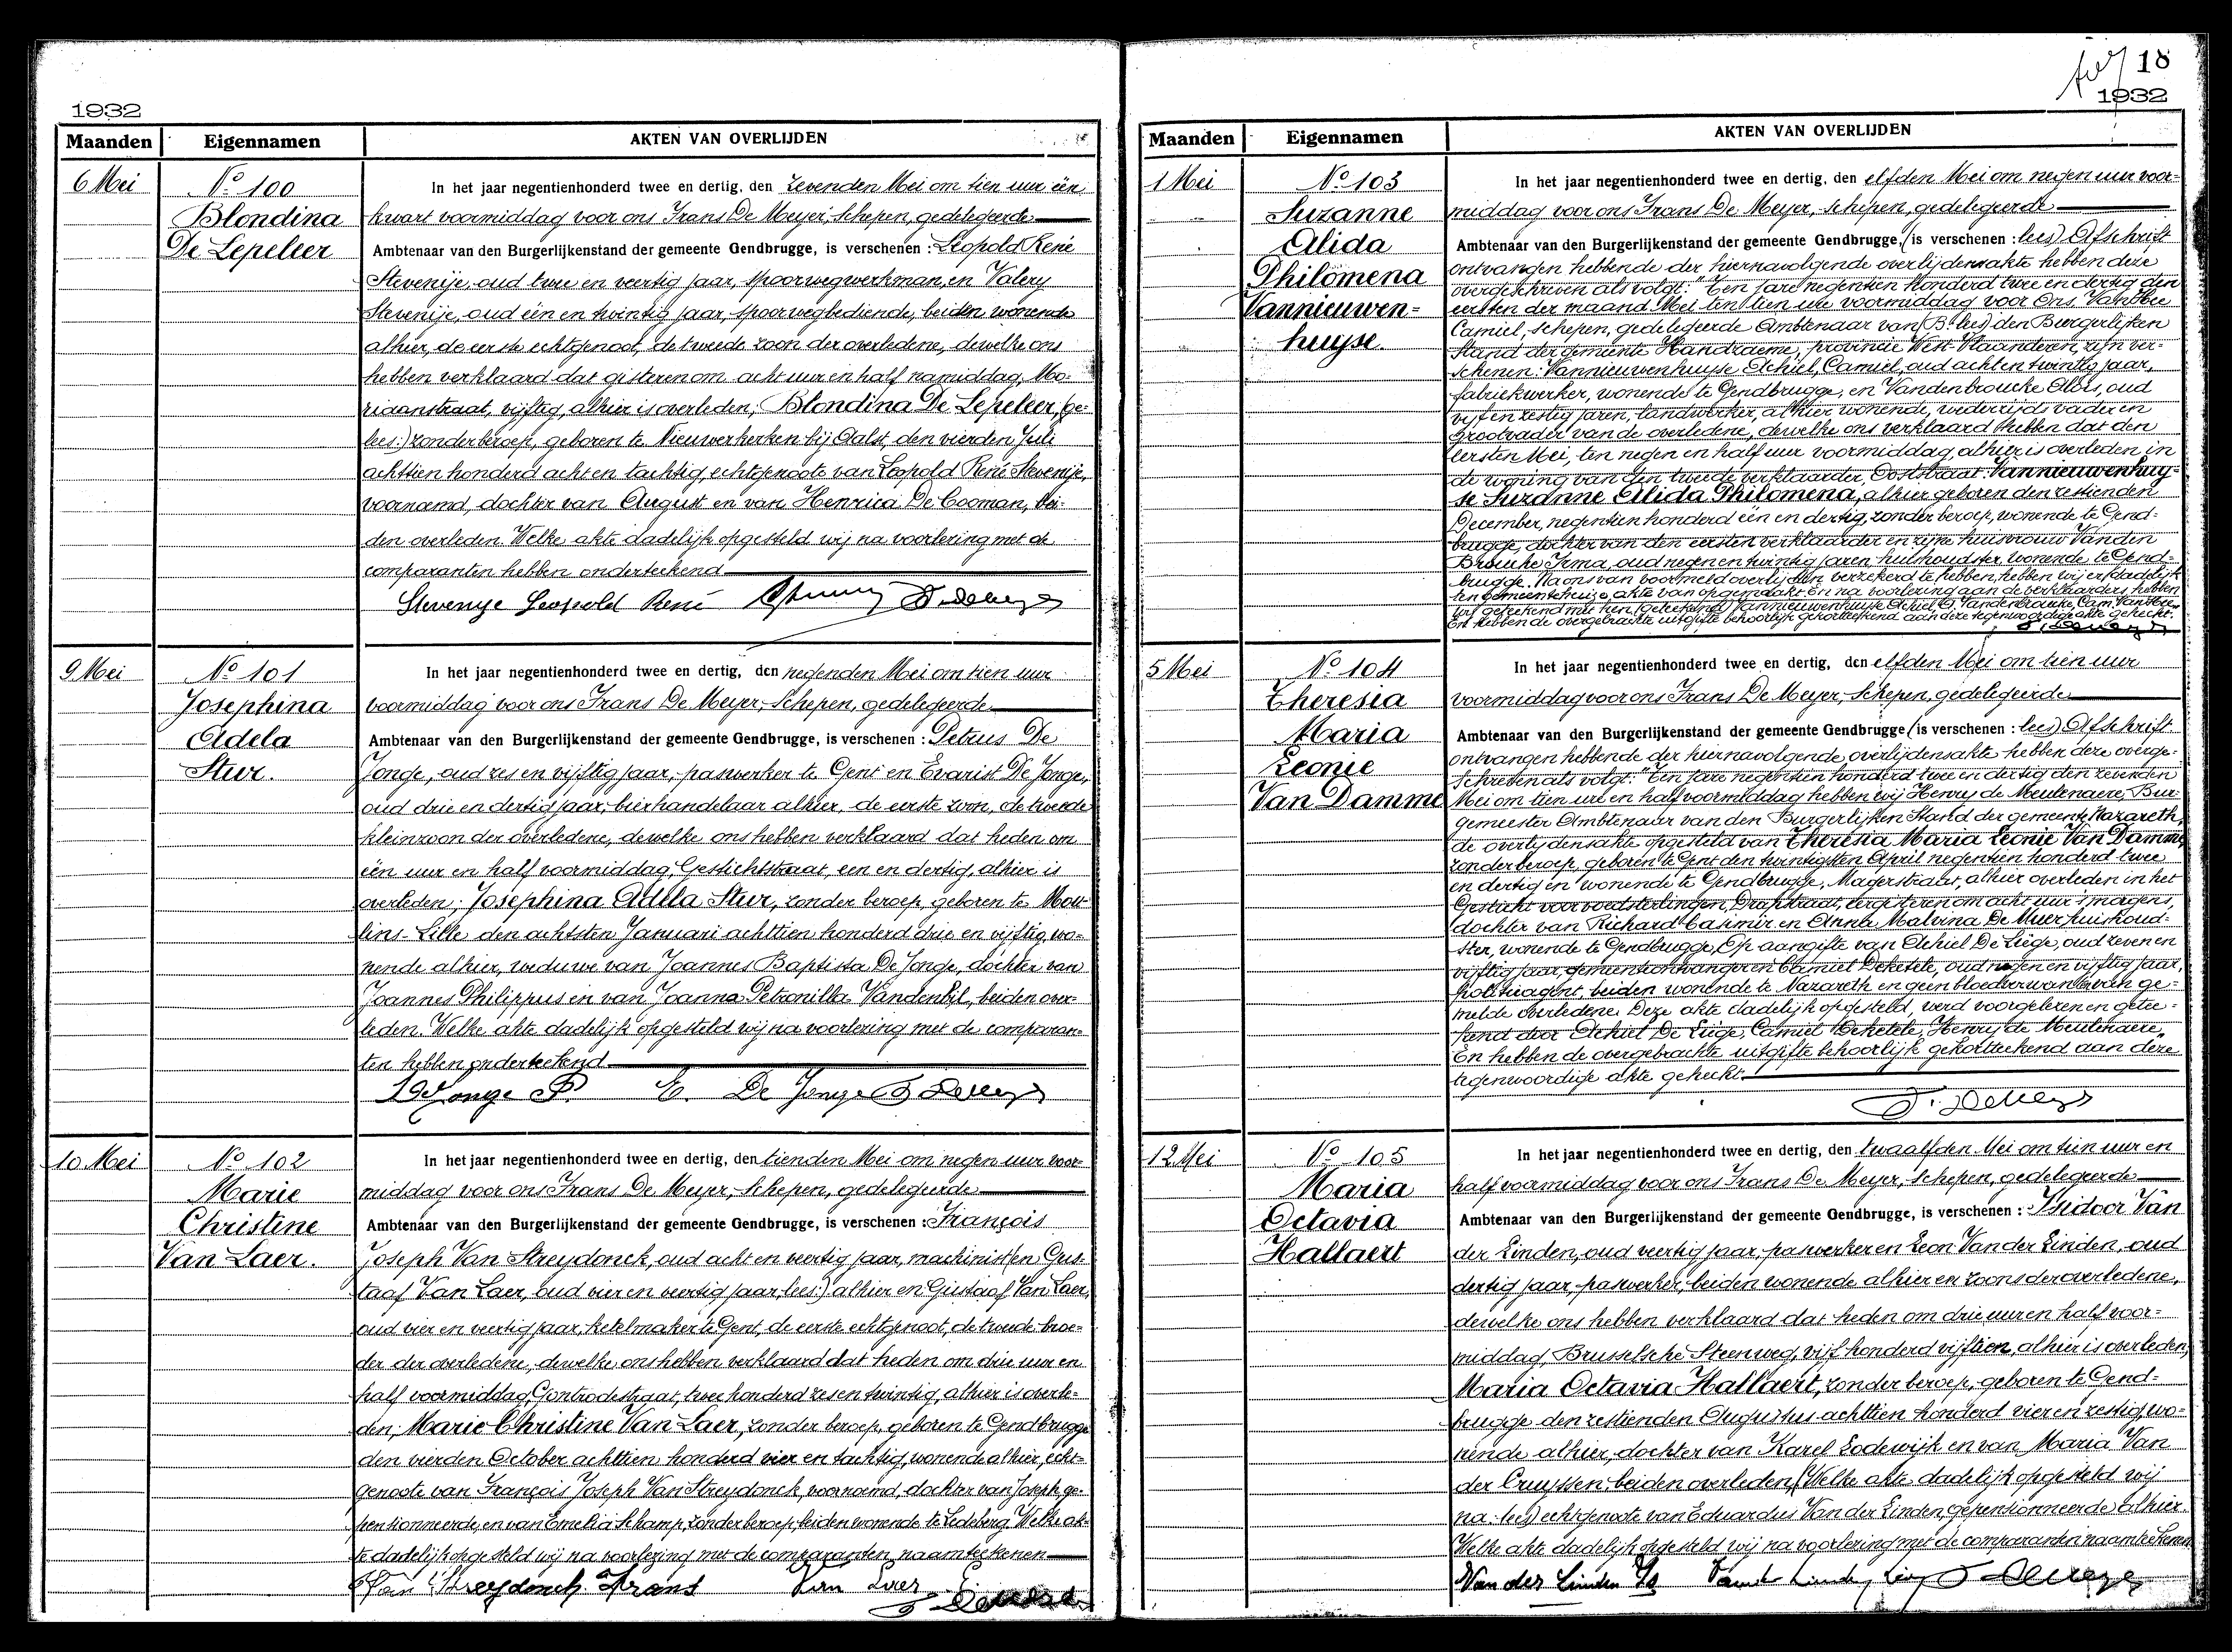 1932
Maanden Eigennamen AKTEN VAN OVERLIJDEN
6 Mei
No 100
Blondina
De Lepeleer
In het jaar negentienhonderd twee en dertig, den zevenden Mei om tien uur één
kwart voormiddag voor ons Frans De Meyer, Schepen, gedelegeerde
Ambtenaar van den Burgerlijkenstand der gemeente Gendbrugge, is verschenen : Leopold René
Stevenije, oud twee en veertig jaar, spoorwegwerkman, en Valery
Stevenije, oud één en twintig jaar, spoorwegbediende, beiden wonende
alhier, de eerste echtgenoot, de tweede zoon der overledene, dewelke ons
hebben verklaard dat gisteren om acht uur en half namiddag, Mo-
riaanstraat, vijftig, alhier is overleden; Blondina De Lepeleer, (ge-
lees:) zonder beroep, geboren te Nieuwerkerken bij Aalst, den vierden Juli
achttien honderd acht en tachtig, echtgenoote van Leopold René Stevenije,
voornoemd, dochter van August en van Henrica De Cooman, bei-
den overleden. Welke akte dadelijk opgesteld wij na voorlezing met de
comparanten hebben onderteekend
Stevenije Leopold René
9 Mei
No 101
Josephina
Adela
Stur.
In het jaar negentienhonderd twee en dertig, den negenden Mei om tien uur
voormiddag voor ons Frans De Meyer, Schepen, gedelegeerde
Ambtenaar van den Burgerlijkenstand der gemeente Gendbrugge, is verschenen : Petrus De
Jonge, oud zes en vijftig jaar, paswerker te Gent en Evarist De Jonge,
oud drie en dertig jaar, bierhandelaar alhier, de eerste zoon, de tweede
kleinzoon der overledene, dewelke ons hebben verklaard dat heden om
één uur en half voormiddag, Gestichtstraat, een en dertig, alhier is
overleden; Josephina Adela Stur, zonder beroep, geboren te Mou-
lins-Lille den achtsten Januari achttien honderd drie en vijftig, wo-
nende alhier, weduwe van Joannes Baptista De Jonge, dochter van
Joannes Philippus en van Joanna Petronilla Vandenbijl, beiden over-
leden. Welke akte dadelijk opgesteld wij na voorlezing met de comparan-
ten hebben onderteekend
De Jonge P. E. De Jonge F. De Meyer
10 Mei
No 102
Marie
Christine
Van Laer.
In het jaar negentienhonderd twee en dertig, den tienden Mei om negen uur voor-
middag voor ons Frans De Meyer, Schepen, gedelegeerde
Ambtenaar van den Burgerlijkenstand der gemeente Gendbrugge, is verschenen : François
Joseph Van Streydonck, oud acht en veertig jaar, machinist (en Gus-
taaf Van Laer, oud vier en veertig jaar, lees:) alhier en Gustaaf Van Laer,
oud vier en veertig jaar, ketelmaker te Gent, de eerste echtgenoot, de tweede broe-
der der overledene, dewelke ons hebben verklaard dat heden om drie uur en
half voormiddag, Gontrodestraat, twee honderd zes en twintig, alhier is overle-
den; Marie Christine Van Laer, zonder beroep, geboren te Gendbrugge
den vierden October achttien honderd vier en tachtig, wonende alhier, echt-
genoote van François Joseph Van Streydonck, voornoemd, dochter van Joseph, ge-
pensionneerde, en van Emelia Schamp, zonder beroep, beiden wonende te Ledeberg. Welke ak-
te dadelijk opgesteld wij na voorlezing met de comparanten naamteekenen
Van Streydonck Frans Van Laer
18
1932
Maanden Eigennamen AKTEN VAN OVERLIJDEN
1 Mei
No 103
Suzanne
Alida
Philomena
Vannieuwen=
huyse
In het jaar negentienhonderd twee en dertig, den elfden Mei om negen uur voor-
middag voor ons Frans De Meyer, Schepen, gedelegeerde
Ambtenaar van den Burgerlijkenstand der gemeente Gendbrugge, (is verschenen : lees) Afschrift
ontvangen hebbende der hiernavolgende overlijdensakte hebben deze
overgeschreven als volgt: "Ten jare negentien honderd twee en dertig den
eersten der maand Mei ten tien ure voormiddag voor Ons Van Hee
Camiel, schepen, gedelegeerde Ambtenaar van (B. lees) den Burgerlijken
Stand der gemeente Handzaeme, provincie West-Vlaanderen, zijn ver-
schenen: Vannieuwenhuyse Achiel, Camiel, oud acht en twintig jaar,
fabriekwerker, wonende te Gendbrugge, en Vandenbroucke Aloïs, oud
vijf en zestig jaren, landwerker, alhier wonende, wederzijds vader en
grootvader van de overledene, dewelke ons verklaard hebben dat den
eersten Mei, ten negen en half uur voormiddag, alhier is overleden in
de woning van den tweede verklaarder, Ooststraat: Vannieuwenhuy-
se Suzanne Alida Philomena, alhier geboren den zestienden
December, negentien honderd één en dertig, zonder beroep, wonende te Gend-
brugge, dochter van den eersten verklaarder en zijne huisvrouw Vanden
Broucke Irma, oud negen en twintig jaren, huishoudster wonende te Gend-
brugge. Na ons van voormeld overlijden verzekerd te hebben, hebben wij er dadelijk
ten gemeentehuize, akte van opgemaakt en na voorlezing aan de verklaarders hebben
wij geteekend met hen (geteekend) Vannieuwenhuyse Achiel, A. Vandenbroucke, Cam. Van Hee.
En hebben de overgebrachte uitgifte behoorlijk gekortteekend aan deze tegenwoordige akte gehecht.
5 Mei
No 104
Theresia
Maria
Leonie
Van Damme
In het jaar negentienhonderd twee en dertig, den elfden Mei om tien uur
voormiddag voor ons Frans De Meyer, Schepen, gedelegeerde
Ambtenaar van den Burgerlijkenstand der gemeente Gendbrugge (is verschenen : lees) Afschrift
ontvangen hebbende der hiernavolgende overlijdensakte hebben deze overge-
schreven als volgt: "Ten jare negentien honderd twee en dertig den zevenden
Mei om tien ure en half voormiddag hebben wij Henry de Meulenaere, Bur-
gemeester Ambtenaar van den Burgerlijken Stand der gemeente Nazareth,
de overlijdensakte opgesteld van Theresia Maria Leonie Van Damme,
zonder beroep, geboren te Gent den twintigsten April negentien honderd twee
en dertig en wonende te Gendbrugge, Magerstraat, alhier overleden in het
Gesticht voor voedsterlingen, Drapstraat, eergisteren om acht uur 's morgens,
dochter van Richard Casimir en Anna Malvina De Muer huishoud-
ster, wonende te Gendbrugge, Op aangifte van Achiel De Liège, oud zeven en
vijftig jaar, gemeenteontvanger en Camiel Deketele, oud negen en vijftig jaar,
politieagent, beiden wonende te Nazareth en geen bloedverwanten van ge-
melde overledene. Deze akte dadelijk opgesteld, werd voorgelezen en getee-
kend door Achiel De Liège, Camiel Deketele, Henry de Meulenaere".
En hebben de overgebrachte uitgifte behoorlijk gekortteekend aan deze
tegenwoordige akte gehecht.
F. De Meyer
12 Mei
No 105
Maria
Octavia
Hallaert
In het jaar negentienhonderd twee en dertig, den twaalfden Mei om tien uur en
half voormiddag voor ons Frans De Meyer, Schepen, gedelegeerde
Ambtenaar van den Burgerlijkenstand der gemeente Gendbrugge, is verschenen : Isidoor Van
der Linden, oud veertig jaar, paswerker en Leon Van der Linden, oud
dertig jaar, paswerker, beiden wonende alhier en zoons der overledene,
dewelke ons hebben verklaard dat heden om drie uur en half voor-
middag, Brusselsche Steenweg, vijf honderd vijftien, alhier is overleden;
Maria Octavia Hallaert, zonder beroep, geboren te Gend-
brugge den zestienden Augustus achttien honderd vier en zestig, wo-
nende alhier, dochter van Karel Lodewijk en van Maria Van
der Cruyssen, beiden overleden, (Welke akte dadelijk opgesteld wij
na: lees) echtgenoote van Eduardus Van der Linden, gepensionneerde alhier.
Welke akte dadelijk opgesteld wij na voorlezing met de comparanten naamteekenen
Van der Linden Is